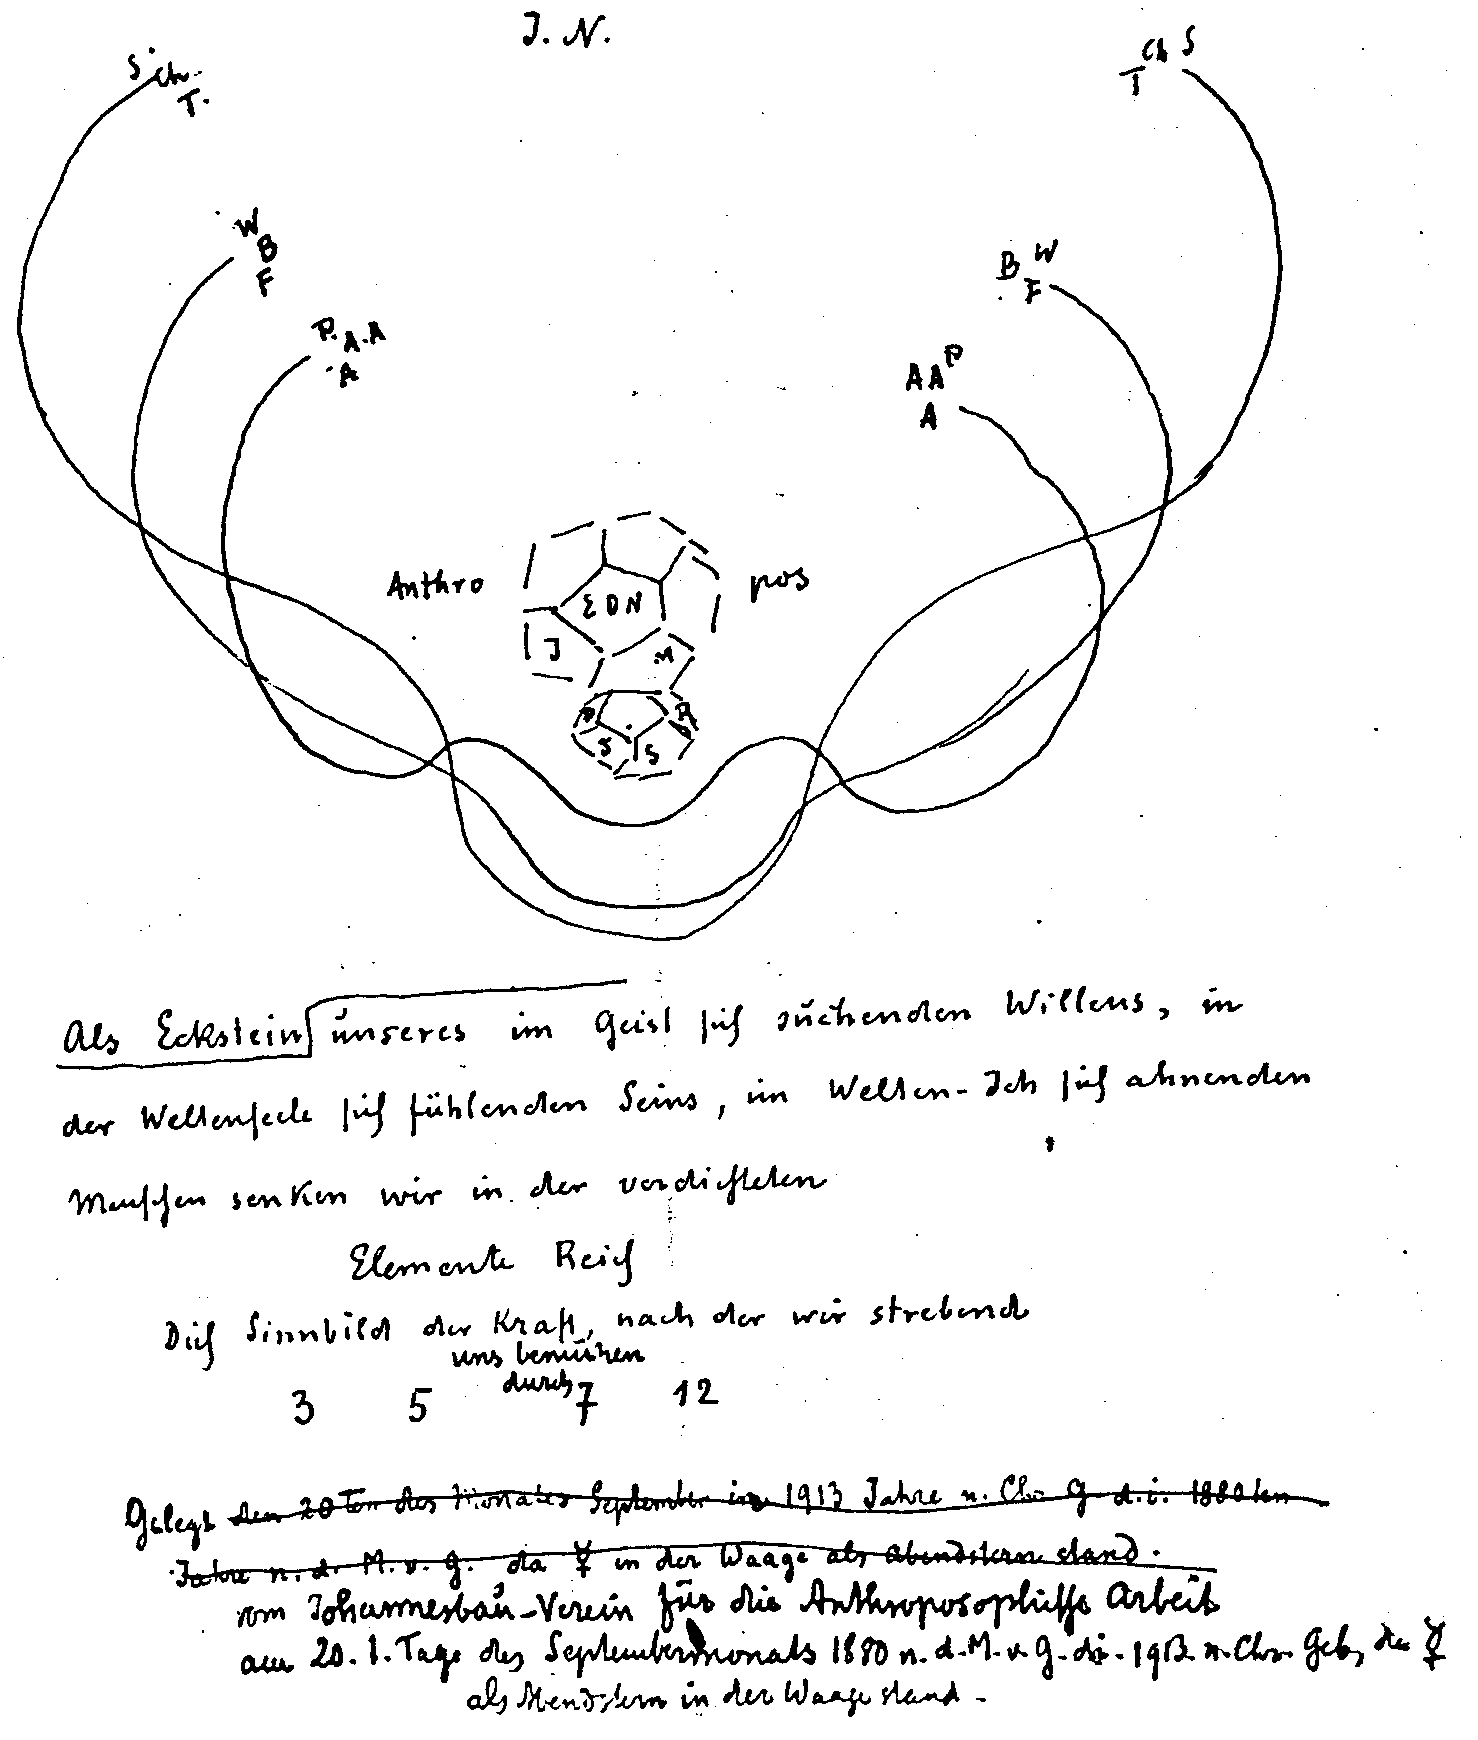 J. N.
S Ch.
T.
Ch S
T
W
B
F
B W
F
P. A. A
A
A A P
A
Anthro
pos
E D N
J
M
S
S
Als Eckstein unseres im Geist sich suchenden Willens, in
der Weltenseele sich fühlenden Seins, im Welten-Ich sich ahnenden
Menschen senken wir in der verdichteten
Elemente Reich
Dich Sinnbild der Kraft, nach der wir strebend
uns bemühen
durch
3 5 7 12
Gelegt den 20 Ten des Monates September im 1913 Jahre n. Chr G d.i. 1880 ten
Jahre n. d. M. v. G. da ☿ in der Waage als Abendstern stand.
vom Johannesbau-Verein für die Anthroposophische Arbeit
am 20. 1. Tage des Septembermonats 1880 n. d. M. v. G. d.i. 1913 n. Chr. Geb, da ☿
als Abendstern in der Waage stand -